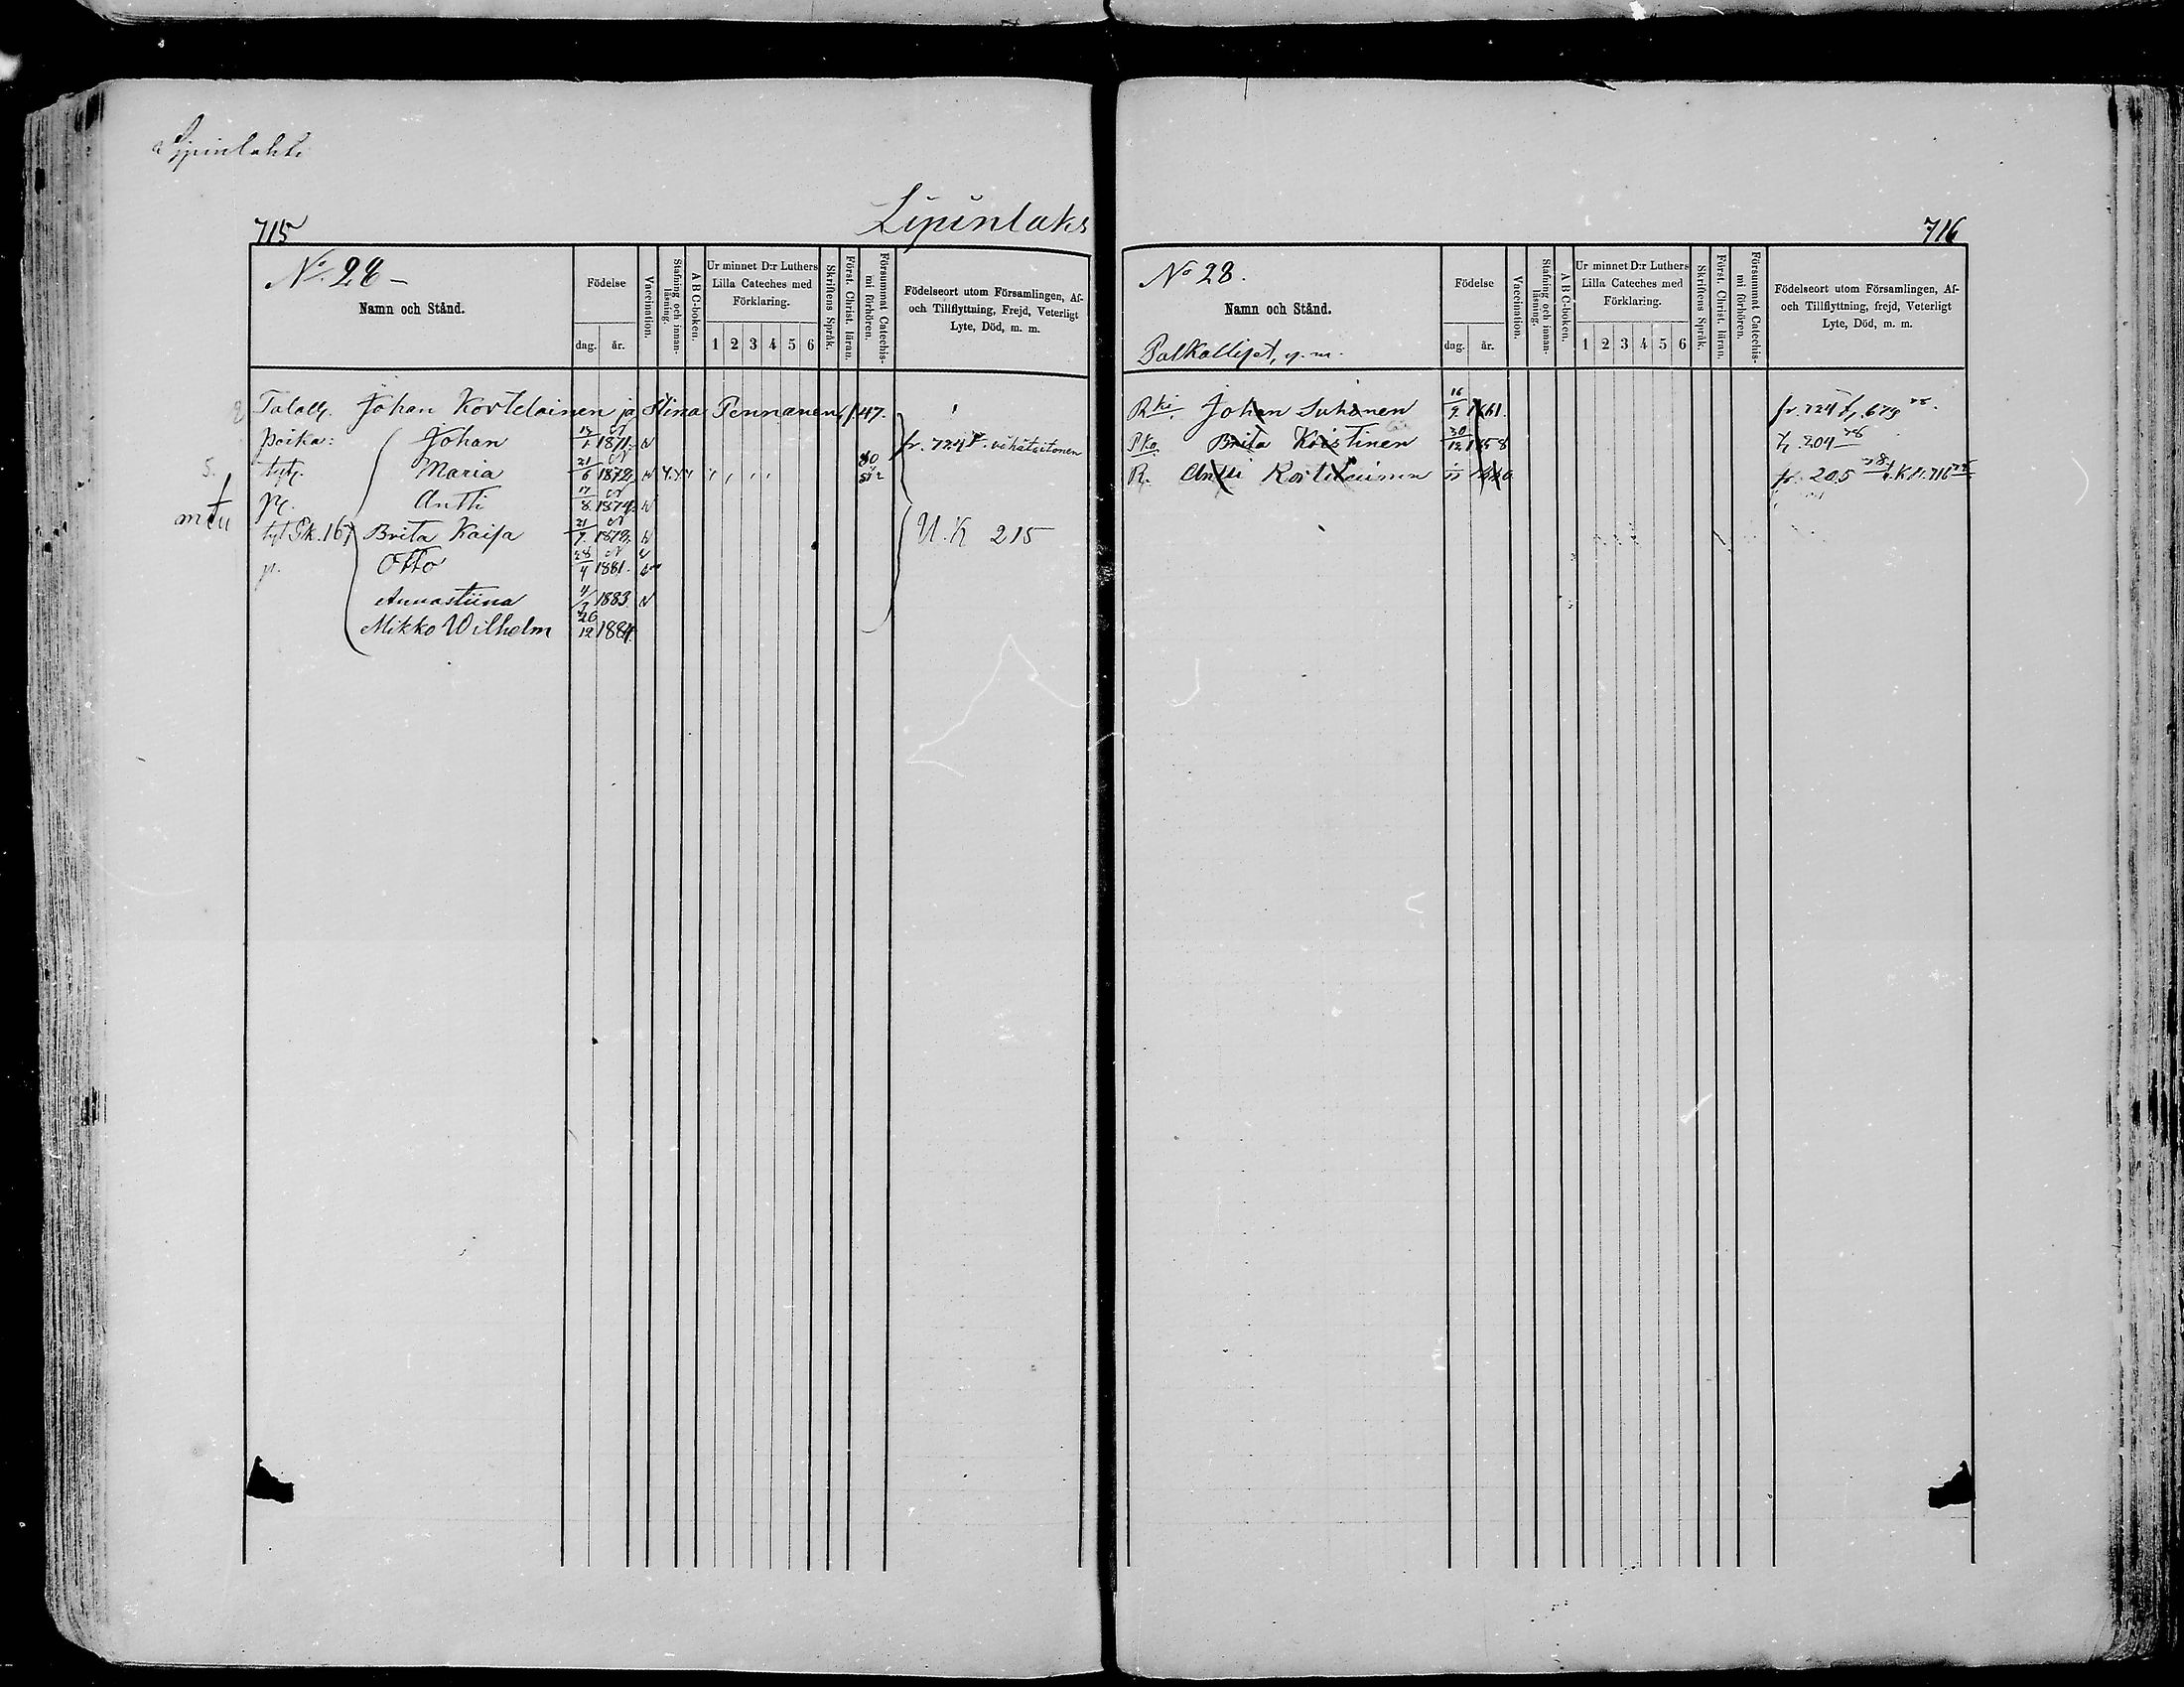 Lipinlahti
Lipinlaks
715
No 28
Namn och Stånd.
Födelse
dag. år.
Vaccination.
Stafning och innan-läsning.
A B C-boken.
Ur minnet D:r Luthers
Lilla Cateches med
Förklaring.
1 2 3 4 5 6
Skriftens Språk.
Först. Christ. läran.
Försummat Catechis-mi förhören.
Födelseort utom Församlingen, Af-
och Tillflyttning, Frejd, Veterligt
Lyte, Död, m. m.
Johan Kortelainen ja Stina Pennanen, /47.
poika: Johan 1/1 1871. v
fr. 724
Maria 21/6 1872, v
Antti 17/8 1874. v
Brita Kaisa 21/7 v
U. K 215
Otto 28/4 1881.
Annastiina 4/7 1883. v
Mikko Wilhelm 26/12 1884.
716
No 28.
Namn och Stånd.
Palkolliset, y. m.
Födelse
dag. år.
Vaccination.
Stafning och innan-läsning.
A B C-boken.
Ur minnet D:r Luthers
Lilla Cateches med
Förklaring.
1 2 3 4 5 6
Skriftens Språk.
Först. Christ. läran.
Försummat Catechis-mi förhören.
Födelseort utom Församlingen, Af-
och Tillflyttning, frejd, Veterligt
Lyte, Död, m. m.
Rki. Johan Suhonen 16/9 1861. fr. 724 t. 679 78.
Pka. Brita Koistinen 30/12 1858 t. 204 78
R. Antti Kortelainen fr. 205 78